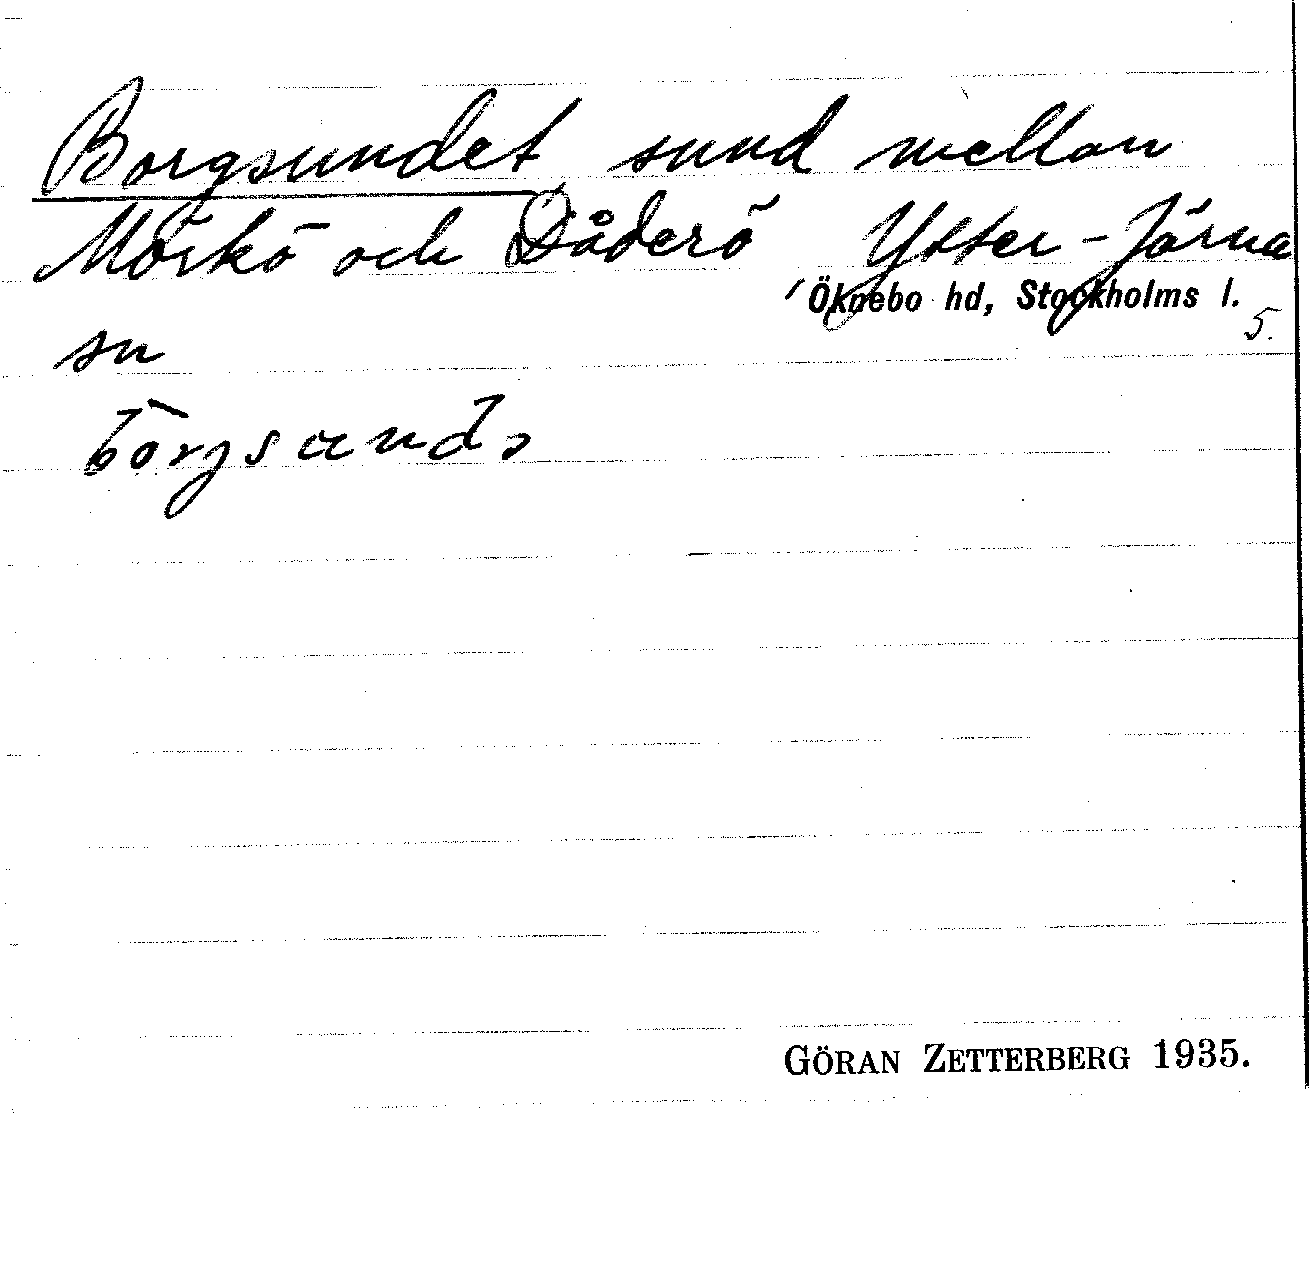 Borgsundet sund mellan
Mörkö och Dåderö Ytter-Järna
Öknebo hd, Stockholms l.
5.
su
bòrgsundə
GÖRAN ZETTERBERG 1935.